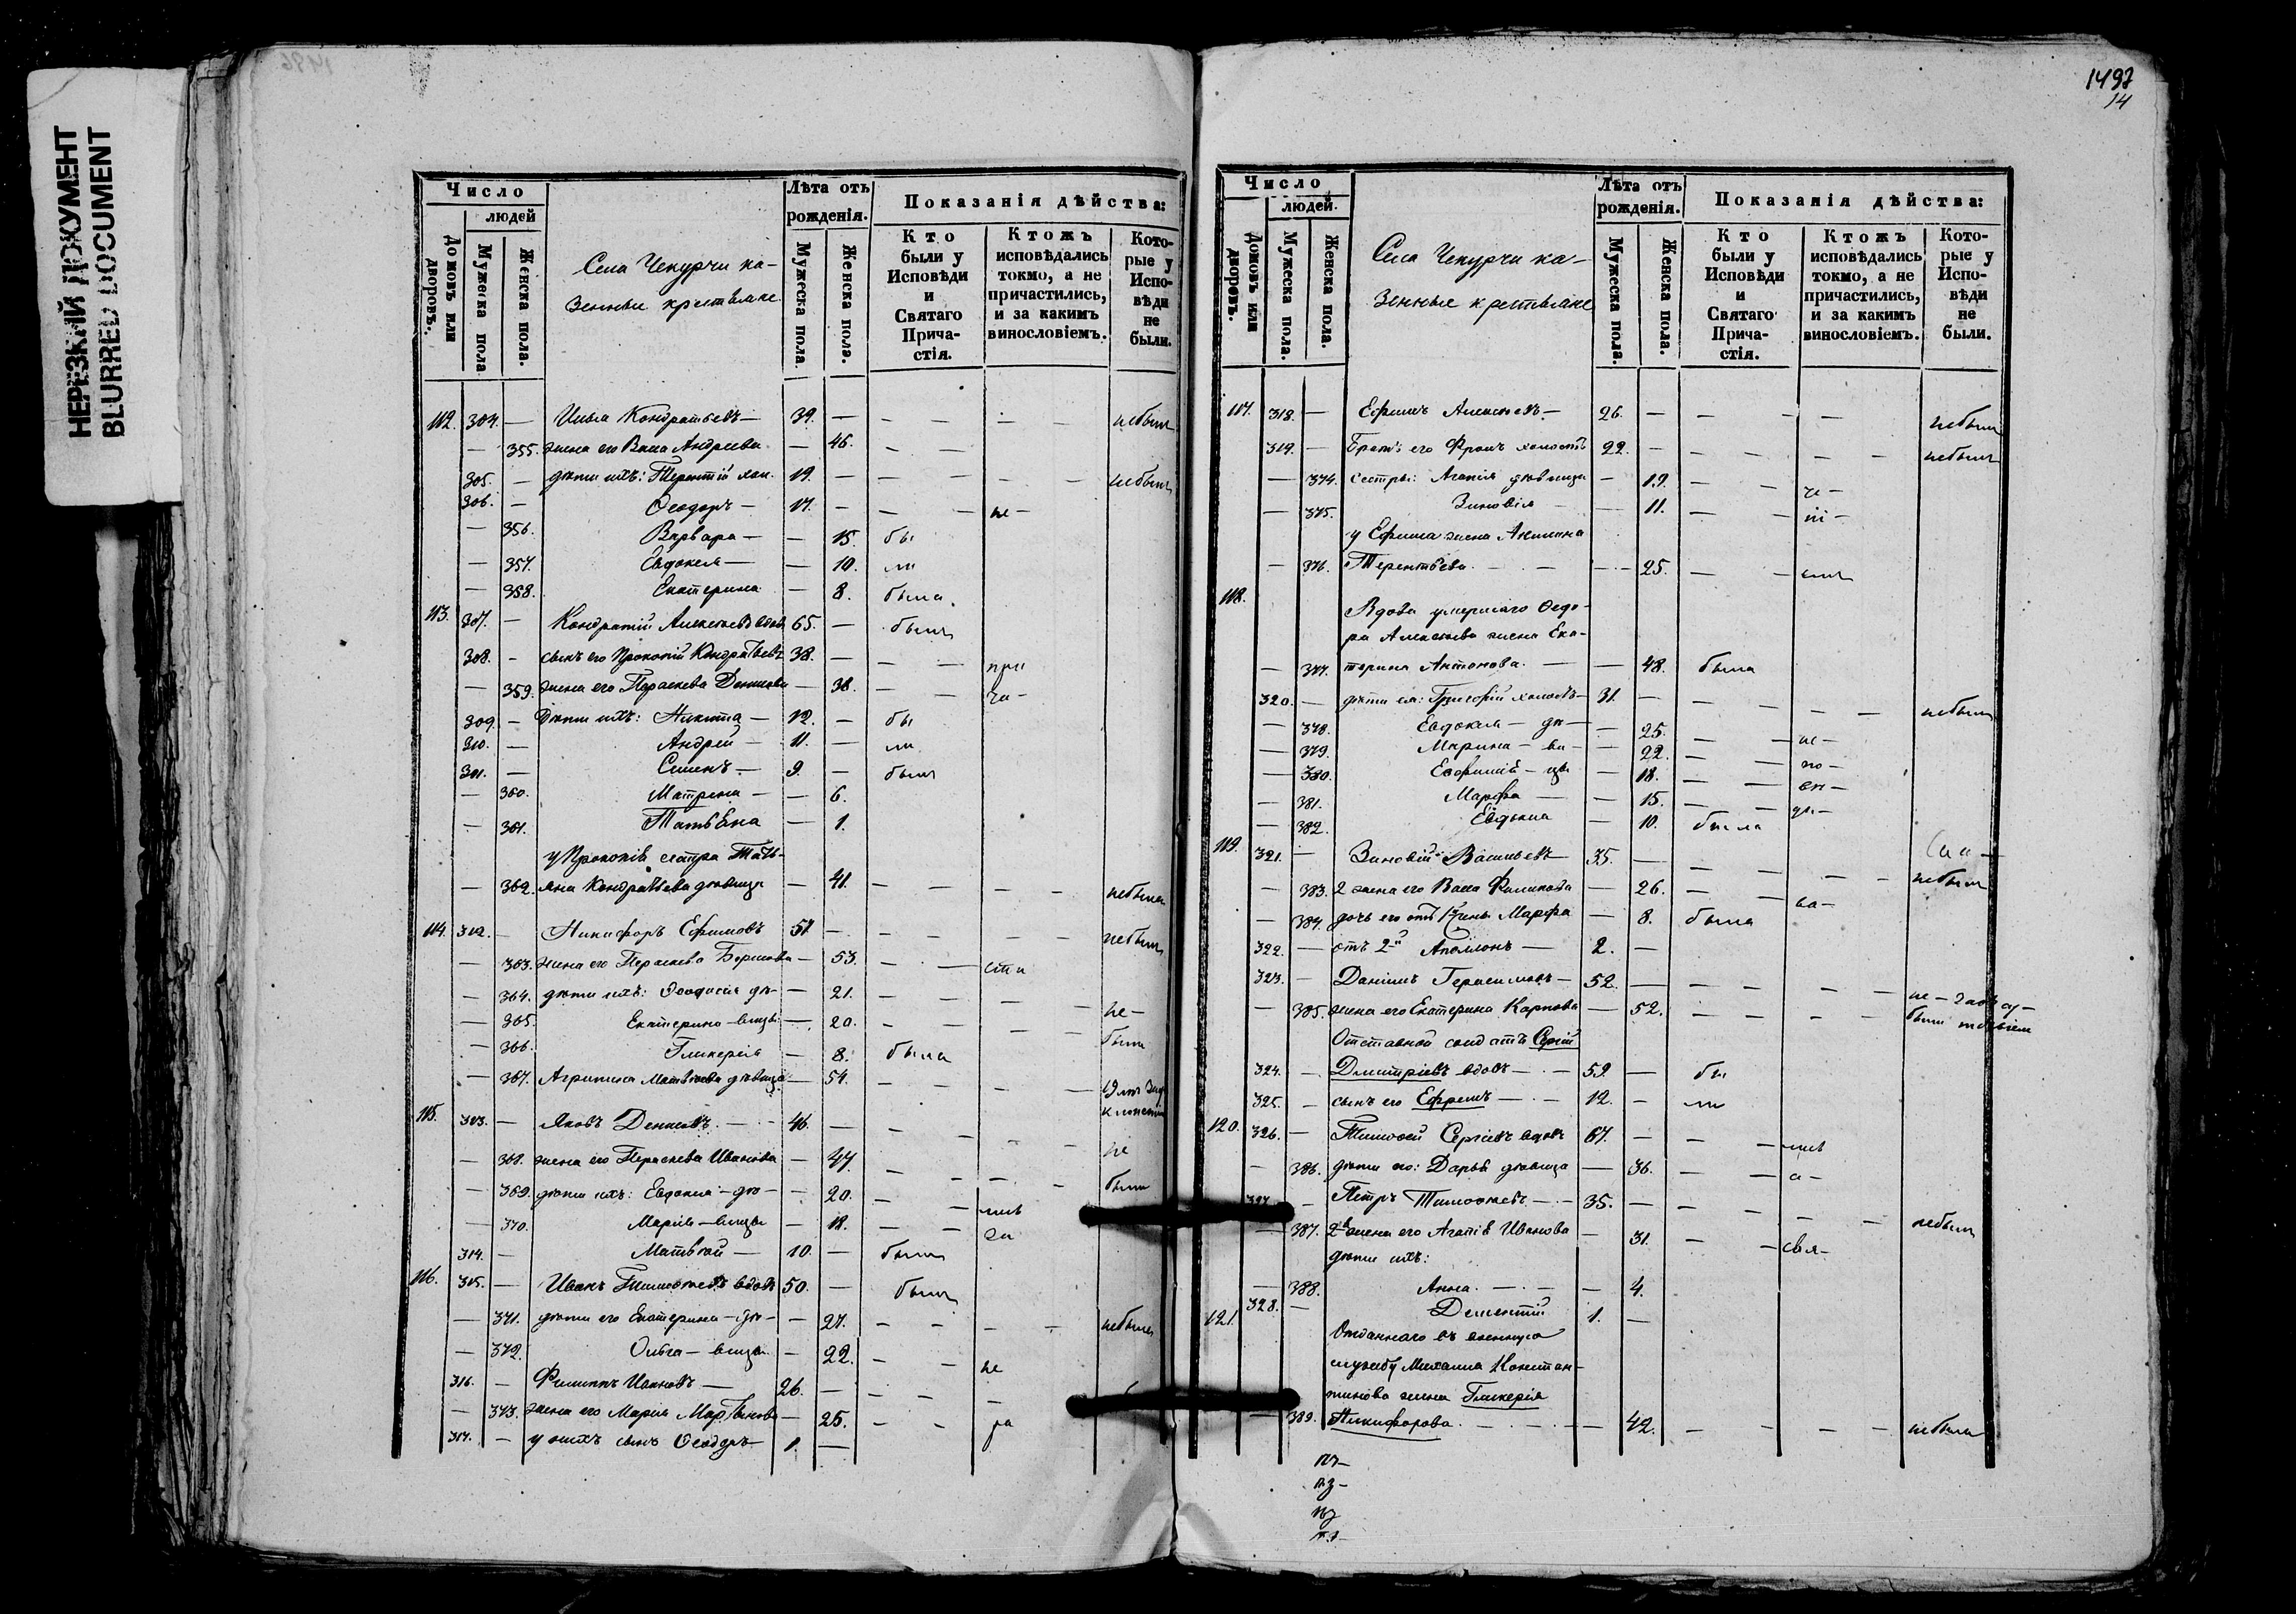 НЕРЕЗКИЙ ДОКУМЕНТ
BLURRED DOCUMENT
Число
людей
Домовъ или дворовъ.
Мужеска пола
Женска пола.
Села Чекурчи ка-
зенные крестьяне
Лѣта отъ рожденія.
Мужеска пола
Женска пола.
Показанія дѣйства:
Кто были у Исповѣди и Святаго Прича-стія.
Ктожъ исповѣдались токмо, а не причастились, и за какимъ винословіемъ.
Кото-рые у Испо-вѣди не были.
112. 304. — Кондратьевъ — 39. — небылъ
— 355. жена его Васса Андреева — 46.
305. — дѣти ихъ: Терентій хол. 19. — небылъ
306. — Ѳеодоръ — 17. — не —
— 356. Варвара — 15. бы
— 357. Евдокія — 10. ли
— 358. Екатерина — 8. была.
113. 307. — Кондратій Алексѣевъ вдовъ 65. — былъ
308. — сынъ его Прокопій Кондратьевъ 38. — при
— 359. жена его Параскева Денисова — 38. ча —
309. — Дѣти ихъ: Никита — 12. — бы
310. — Андрей — 11. — ли
311. — Семенъ — 9. — былъ
— 360. Матрена — 6.
— 361. Татьяна — 1.
у Прокопія сестра Тать-
— 362. яна Кондратьева дѣвица — 41. — небыла
114. 312. — Никифоръ Ефимовъ 57 — небылъ
— 363. жена его Параскева Борисова — 53. — сти
— 364. дѣти ихъ: Ѳеодосія дѣ — 21. — не —
— 365. Екатерина — вицы — 20. — были
— 366. Гликерія — 8. была
— 367. Агрипина Матвѣева дѣвица — 54. —
115. 313. — Яковъ Денисовъ. — 46. — не
— 368. жена его Параскева Иванова — 47 — были
— 369. дѣти ихъ: Евдокія — дѣ — 20. —
— 370. Марія — вицы — 18. за
314. — Матвѣй — 10. — былъ
116. 315. — Иванъ Тимоѳеевъ вдовъ 50. — былъ
— 371. дѣти его Екатерина — дѣ — 27. — небыла
— 372. Ольга — вицы — 22. — не
316. — Филиппъ Ивановъ — 26. —
— 373. жена его Марія Мартынова — 25. — ра
317. — у нихъ сынъ Ѳеодоръ — 1. —
1497
14
Число
людей.
Домовъ или дворовъ.
Мужеска пола.
Женска пола.
Села Чекурчи ка-
зенные крестьяне
Лѣта отъ рожденія.
Мужеска пола.
Женска пола.
Показанія дѣйства:
Кто были у Исповѣди и Святаго Прича-стія.
Ктожъ исповѣдались токмо, а не причастились, и за какимъ винословіемъ.
Кото-рые у Испо-вѣди не были.
117. 318. — Ефимъ Алексѣевъ — 26. — небылъ
319. — Братъ его Фролъ холостъ 22. — небылъ
— 374. сестры: Агапія дѣвица — 19. —
— 375. Зиновія — 11. —
у Ефима жена Акилина
— 376. Терентьева. — 25. —
118. Вдова умершаго Ѳедо-
ра Алексѣева жена Ека-
— 377. терина Антонова. — 48. была
320. — дѣти ея: Григорій холостъ — 31. — небылъ
— 378. Евдокія — дѣ — 25. — не —
— 379. Марина — ви — 22. — по —
— 380. Евфимія — цы — 18. —
— 381. Марфа — 15. —
— 382. Евдокиа — 10. была
119. 321. — Зиновій Васильевъ — 35. — небылъ
— 383. 2 жена его Васса Филипова — 26. — ва —
— 384. дочь его отъ 1й жены Марфа — 8. была
322. — отъ 2й Аполлонъ — 2. —
323. — Даніилъ Герасимовъ — 52. — не —
— 385. жена его Екатерина Карпова — 52. — были
Отставной солдатъ Сергій
324. — Дмитріевъ вдовъ — 59 — бы
325. — сынъ его Ефремъ — 12. — ли
120. 326. — Тимоѳей Сергіевъ вдовъ 67. —
— 386. дѣти его: Дарья дѣвица — 36. —
327. — Петръ Тимоѳеевъ — 35. — небылъ
— 387. 2я жена его Агапія Иванова — 31. — свя —
дѣти ихъ:
— 388. Анна. — 4.
328. — Дементій 1. —
121. Отданнаго въ военную
службу Михаила Констан-
тинова жена Гликерія
— 389. Никифорова. — 42. — небыла